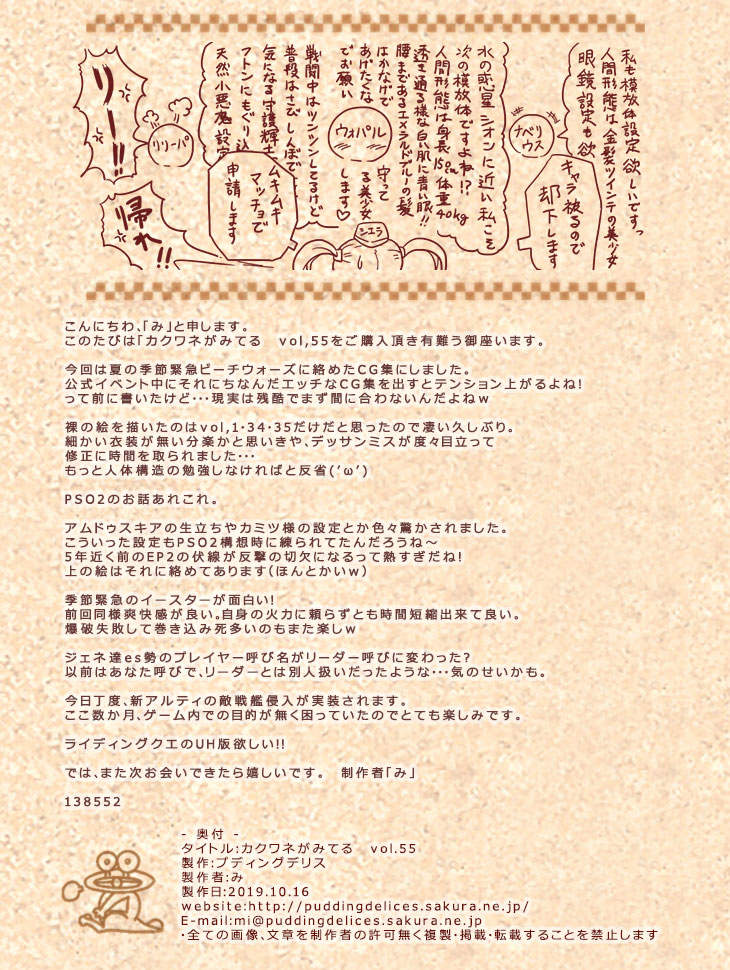 私も模放体設定欲しいですっ
人間形態は金髪ツインテの美少女
眼鏡設定も欲
ナベリ
ウス
キャラ被るので
却下します
水の惑星シオンに近い私こそ
次の模放体ですよね!?
人間形態は身長150cm体重40kg
透き通る様な白い肌に青い眼!!
腰まであるエメラルドブルーの髪
はかなげで
守って
あげたくな
る美少女
でお願い
します♡
ウォパル
シエラ
戦闘中はツンツンしてるけど
普段はさびしんぼで
気になる守護輝士
フトンにもぐり込
天然小悪魔設定
ムキムキ
マッチョで
申請します
リリーパ
リー!!
帰れ!!
こんにちわ、「み」と申します。
このたびは「カクワネがみてる　vol,55をご購入頂き有難う御座います。
今回は夏の季節緊急ビーチウォーズに絡めたCG集にしました。
公式イベント中にそれにちなんだエッチなCG集を出すとテンション上がるよね!
って前に書いたけど・・・現実は残酷でまず間に合わないんだよねw
裸の絵を描いたのはvol,1・34・35だけだと思ったので凄い久しぶり。
細かい衣装が無い分楽かと思いきや、デッサンミスが度々目立って
修正に時間を取られました・・・
もっと人体構造の勉強しなければと反省('ω')
PSO2のお話あれこれ。
アムドゥスキアの生立ちやカミツ様の設定とか色々驚かされました。
こういった設定もPSO2構想時に練られてたんだろうね～
5年近く前のEP2の伏線が反撃の切欠になるって熱すぎだね!
上の絵はそれに絡めてあります(ほんとかいw)
季節緊急のイースターが面白い!
前回同様爽快感が良い。自身の火力に頼らずとも時間短縮出来て良い。
爆破失敗して巻き込み死多いのもまた楽しw
ジェネ達es勢のプレイヤー呼び名がリーダー呼びに変わった?
以前はあなた呼びで、リーダーとは別人扱いだったような・・・気のせいかも。
今日丁度、新アルティの敵戦艦侵入が実装されます。
ここ数か月、ゲーム内での目的が無く困っていたのでとても楽しみです。
ライディングクエのUH版欲しい!!
では、また次お会いできたら嬉しいです。　制作者「み」
138552
- 奥付 -
タイトル:カクワネがみてる　vol.55
製作:プディングデリス
製作者:み
製作日:2019.10.16
website:http://puddingdelices.sakura.ne.jp/
E-mail:mi@puddingdelices.sakura.ne.jp
・全ての画像、文章を制作者の許可無く複製・掲載・転載することを禁止します